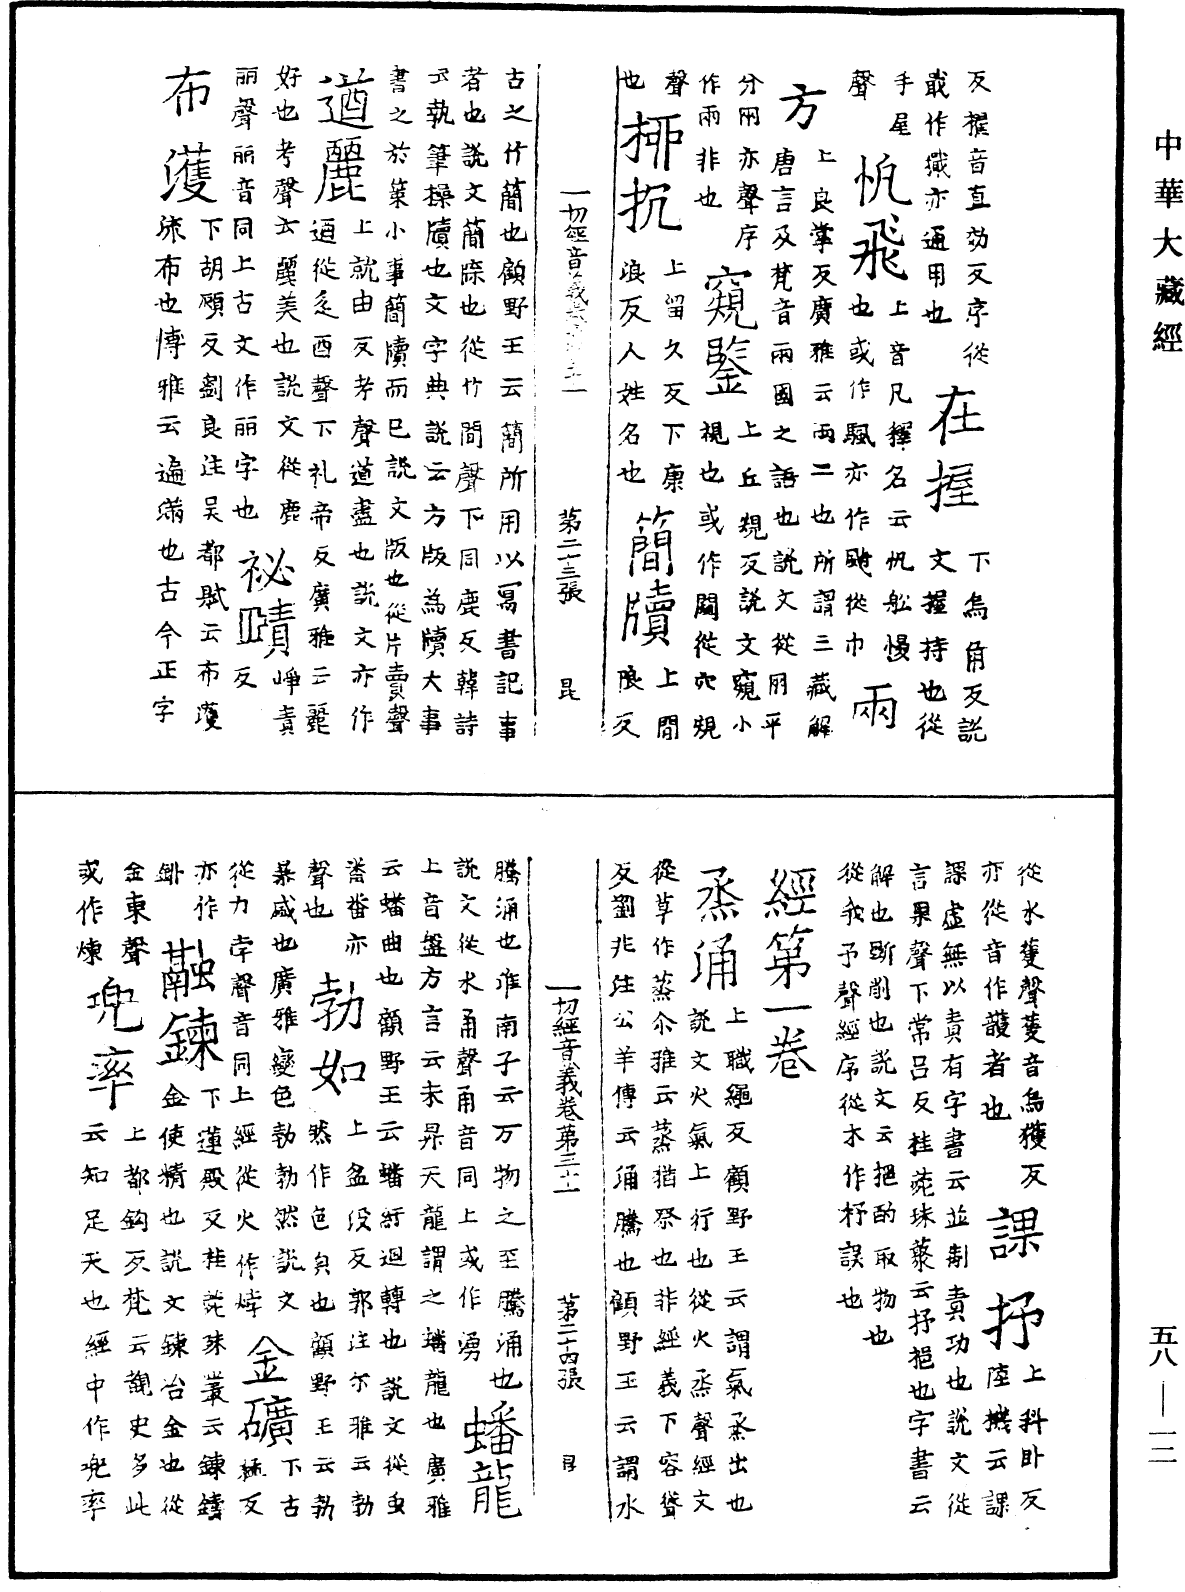 中華大藏經
反擢音直効反序從
㦸作㩴亦通用也
在握
下烏角反說
文握持也從
手屋
聲
帆飛
上音凡擇名云帆舩慢
也或作颿亦作䬛從巾
兩
方
上良掌反廣雅云兩二也所謂三藏解
唐言及梵音兩國之語也說文從丨平
分兩亦聲序
作兩非也
窺鑒
上丘規反說文窺小
視也或作闚從穴規
聲
也
挷抗
上留久反下康
浪反人姓名也
簡牘
上間
限反
一切經音義卷
第二十三張
昆
古之竹簡也顧野王云簡所用以寫書記事
者也說文簡牒也從竹間聲下同鹿反韓詩
云執筆操牘也文字典說云方版為牘大事
書之於策小事簡牘而已說文版也從片賣聲
遒麗
上就由反考聲遒盡也說文亦作
逎從辵酉聲下礼帝反廣雅云麗
好也考聲云麗美也說文從鹿
丽聲丽音同上古文作丽字也
祕賾
崢責
反
布濩
下胡頋反劉良注吴都賦云布濩
流布也博雅云遍滿也古今正字
從水蒦聲蒦音烏獲反
亦從音作頀者也
課抒
上科卧反
陸機云課
課虛無以責有字書云並剬責功也說文從
言果聲下常呂反桂菀珠藂云抒挹也字書云
解也斷削也說文云挹酌取物也
從手予聲經序從木作杼誤也
經第一卷
烝涌
上職繩反顧野王云謂氣烝出也
說文火氣上行也從火烝聲經文
從草作蒸尒雅云蒸猶祭也非經義下容聳
反劉兆注公羊傳云涌騰也顧野王云謂水
一切經音義卷第三十一
第二十四張
昆
騰涌也淮南子云万物之至騰涌也
說文從水甬聲甬音同上或作湧
蟠龍
上音盤方言云未昇天龍謂之蟠龍也廣雅
云蟠曲也顧野王云蟠紆迴轉也說文從虫
番聲番亦
聲也
勃如
上盆沒反郭注尒雅云勃
然作色皃也顧野王云勃
暴盛也廣雅變色勃勃然說文
從力孛聲音同上經從火作㶿
金礦
下古
猛反
亦作
鉚
融鍊
下蓮殿反桂菀珠叢云鍊鑄
金使精也說文鍊冶金也從
金柬聲
或作煉
兜率
上都鉤反梵云覩史多此
云知足天也經中作兠率
五八—一二